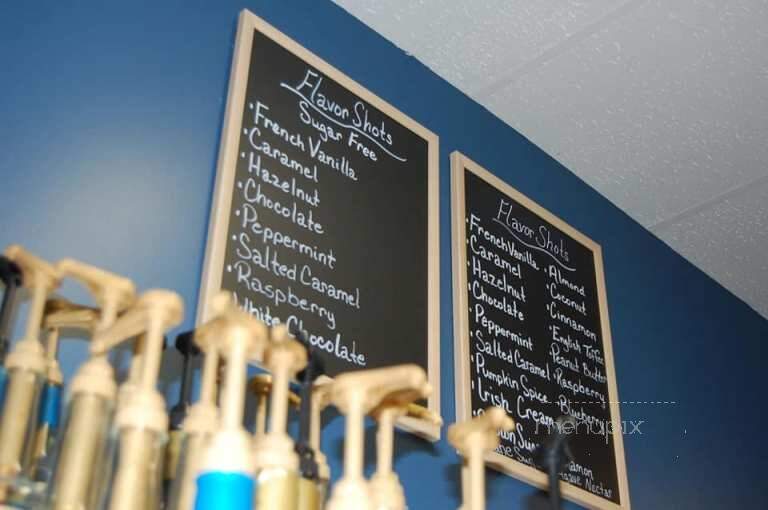 Flavor Shots
Sugar Free
· French Vanilla
· Caramel
· Hazelnut
· Chocolate
· Peppermint
· Salted Caramel
· Raspberry
White Chocolate
Flavor Shots
· French Vanilla
· Caramel
· Hazelnut
· Chocolate
· Peppermint
· Salted Caramel
· Pumpkin Spice
· Irish Cream
· Almond
· Coconut
· Cinnamon
· English Toffee
· Peanut Butter
· Raspberry
· Blueberry
menupix